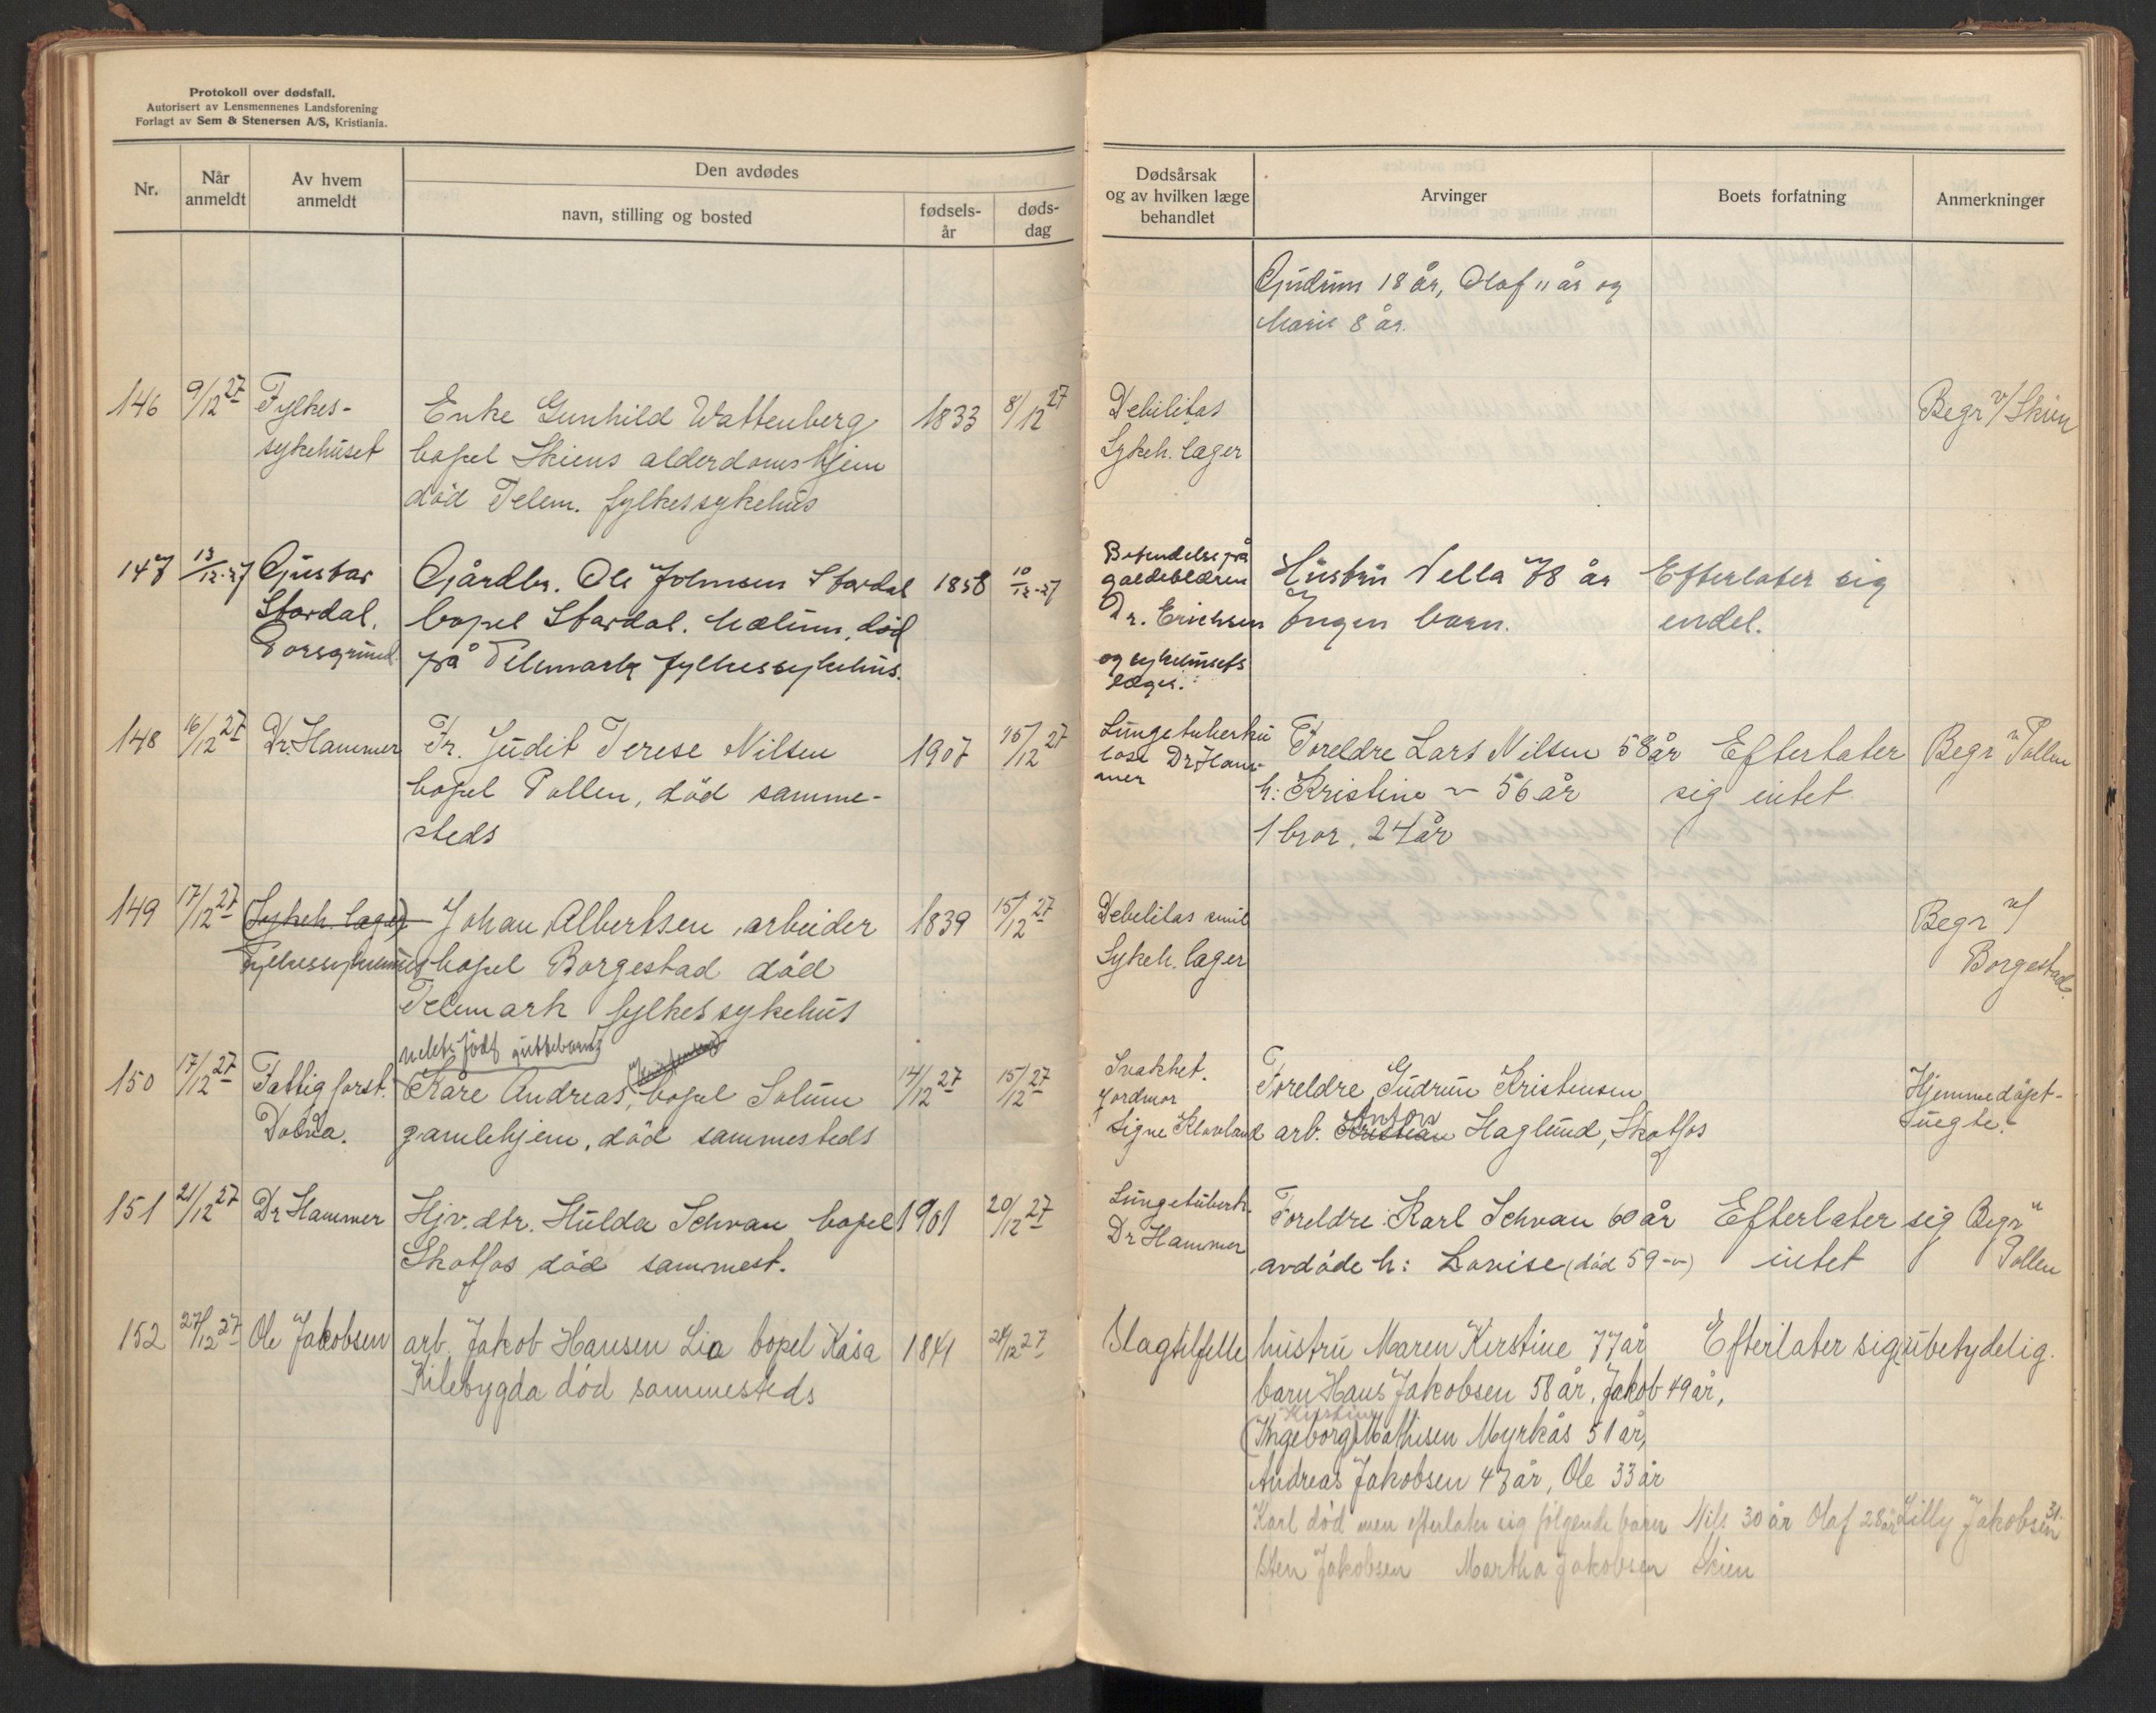 Protokoll over dødsfall.
Autorisert av Lensmennenes Landsforening
Forlagt av Sem & Stenersen A/S, Kristiania.
Nr.
Når anmeldt
Av hvem anmeldt
Den avdødes
navn, stilling og bosted
fødsels-år
døds-dag
Dødsårsak og av hvilken læge behandlet
Arvinger
Boets forfatning
Anmerkninger
Gudrun 18 år, Olaf 11 år og
Marie 8 år.
146 9/12 27 Fylkes- Enke Gunhild Wattenberg 1833 8/12 27 Debilitas Begr v/ Skien
sykehuset bopel Skiens alderdomshjem Sykeh. læger
død Telem. fylkessykehus
147 13/12-27 Gustav Gårdbr. Ole Johnsen Stordal 1858 10/12-27 Betendelse på galdeblæren Hustru Nella 78 år Efterlater sig
Stordal. bopel Stordal. Mælum, død Dr. Erichsen Ingen barn. endel.
Porsgrund på Telemark fylkessykehus. og sykehusets
læger.
148 16/12 27 Dr. Hammer Fr. Judit Terese Nilsen 1907 15/12 27 Lungetuberku Foreldre Lars Nilsen 58 år Efterlater Begr v Pollen
bopel Pollen, død samme- lose Dr Ham- h: Kristine ~ 56 år sig intet
steds mer 1 bror, 24 år
149 17/12 27 (Sykeh. læger) Johan Albertsen, arbeider 1839 15/12 27 Debelitas senil Begr v/
Fylkessykehuset bopel Borgestad død Sykeh. læger Borgestad.
Telemark fylkessykehus
uekte født guttebarn
150 17/12 27 Fattigforst. Kåre Andreas, bopel Solum 14/12 27 15/12 27 Svakhet. Foreldre Gudrun Kristensen Hjemmedøpt-
Jordmor Anton
gamlehjem, død sammesteds Signe Klovland arb. Kristian Haglund, Skotfos uegte.
151 21/12 27 Dr Hammer Hjv. dtr. Hulda Schvan bopel 1901 20/12 27 Lungetuberk. Foreldre: Karl Schvan 60 år Efterlater sig Begr v
Skotfos død sammest. Dr Hammer avdøde h: Lovise (død 59 -v-) intet Pollen
152 27/12 27 Ole Jakobsen arb. Jakob Hansen Lia bopel Kåsa 1841 24/12 27 Slagtilfelle hustru Maren Kirstine 77 år Efterlater sig ubetydelig.
Kilebygda død sammesteds barn Hans Jakobsen 58 år, Jakob 49 år,
Kirstine
(Ingeborg) Mathisen Myrkås 51 år,
Andreas Jakobsen 43 år, Ole 33 år
Karl død men efterlater sig følgende barn Nils 30 år Olaf 28 år Lilly Jakobsen 31.
Sten Jakobsen Martha Jakobsen Skien